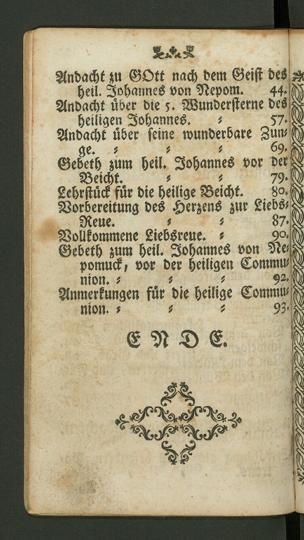 Andacht zu GOtt nach dem Geist des
heil. Johannes von Nepom. 44.
Andacht über die 5. Wundersterne des
heiligen Johannes. 57.
Andacht über seine wunderbare Zun-
ge. 69.
Gebeth zum heil. Johannes vor der
Beicht. 79.
Lehrstück für die heilige Beicht. 80.
Vorbereitung des Herzens zur Liebs-
Reue. 87.
Vollkommene Liebsreue. 90.
Gebeth zum heil. Johannes von Ne-
pomuck, vor der heiligen Commu-
nion. 92.
Anmerkungen für die heilige Commu-
nion. 93.
ENDE.